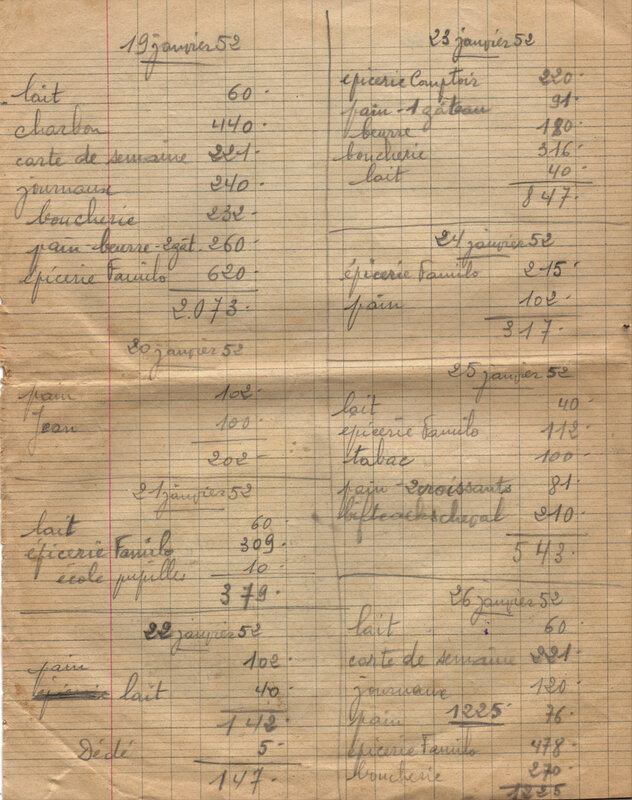 19 janvier 52
lait 60.
charbon 440.
carte de semaine 221.
journaux 240.
boucherie 232.
pain-beurre-2gât. 260.
épicerie Familo 620.
2.073.
20 janvier 52
pain 102.
Jean 100.
202.
21 janvier 52
lait 60.
épicerie Familo 309.
école pupilles 10.
379.
22 janvier 52
pain 102.
lait 40.
142.
Dédé 5.
147.
23 janvier 52
épicerie Comptoir 220.
pain-1 gâteau 91.
beurre 180
boucherie 316.
lait 40.
847.
24 janvier 52
épicerie Familo 215.
pain 102.
317.
25 janvier 52
lait 40.
épicerie Familo 112.
tabac 100.
pain-2croissants 81.
biftecks cheval 210.
543.
26 janvier 52
lait 60.
carte de semaine 221.
journaux 120.
pain 1225 76.
épicerie Familo 478.
boucherie 270.
1225